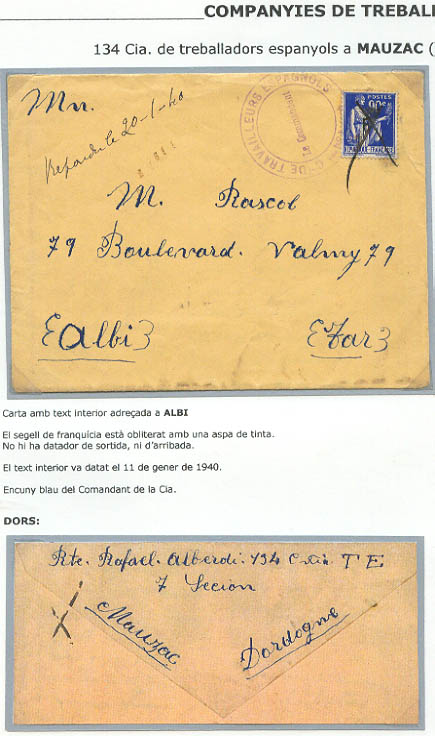 COMPANYIES DE TREBALL
134 Cia. de treballadors espanyols a MAUZAC (
Mn.
Repondu le 20-1-40
Cie DE TRAVAILLEURS ESPAGNOLS
Le Commandant
POSTES
90c
M. Rascol
79 Boulevard. Valmy 79
Albi
Tar
Carta amb text interior adreçada a ALBI
El segell de franquícia està obliterat amb una aspa de tinta.
No hi ha datador de sortida, ni d'arribada.
El text interior va datat el 11 de gener de 1940.
Encuny blau del Comandant de la Cia.
DORS:
Rte. Rafael. Alberdi. 134 Cnia. T E
7 Secion
Mauzac
Dordogne